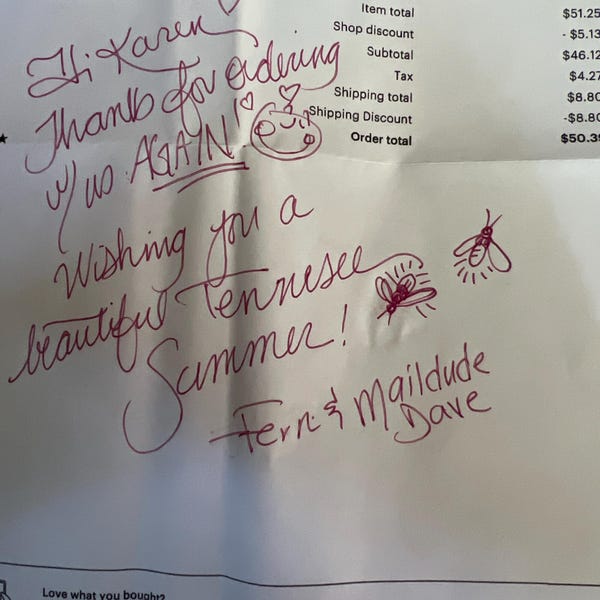 Item total $51.25
Shop discount - $5.13
Subtotal $46.12
Tax $4.27
Shipping total $8.80
Shipping Discount -$8.80
Order total $50.39
Hi Karen
Thanks for ordering
w/ us AGAIN!
Wishing you a
beautiful Tennesee
Summer!
Fern & Maildude
Dave
Love what you bought?